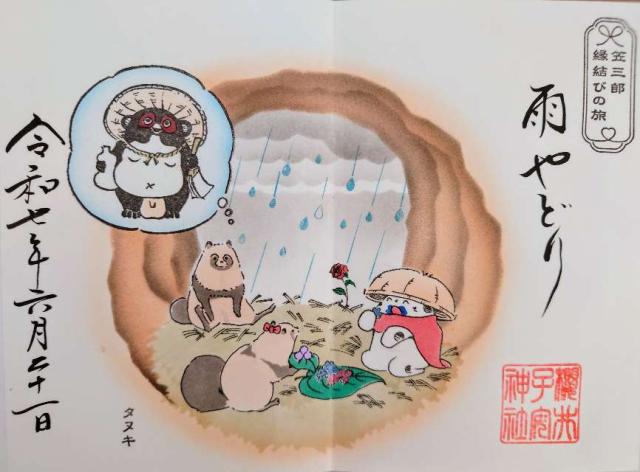 笠三郎
縁結びの旅
雨やどり
櫻井
子安
神社
タヌキ
令和七年六月二十一日